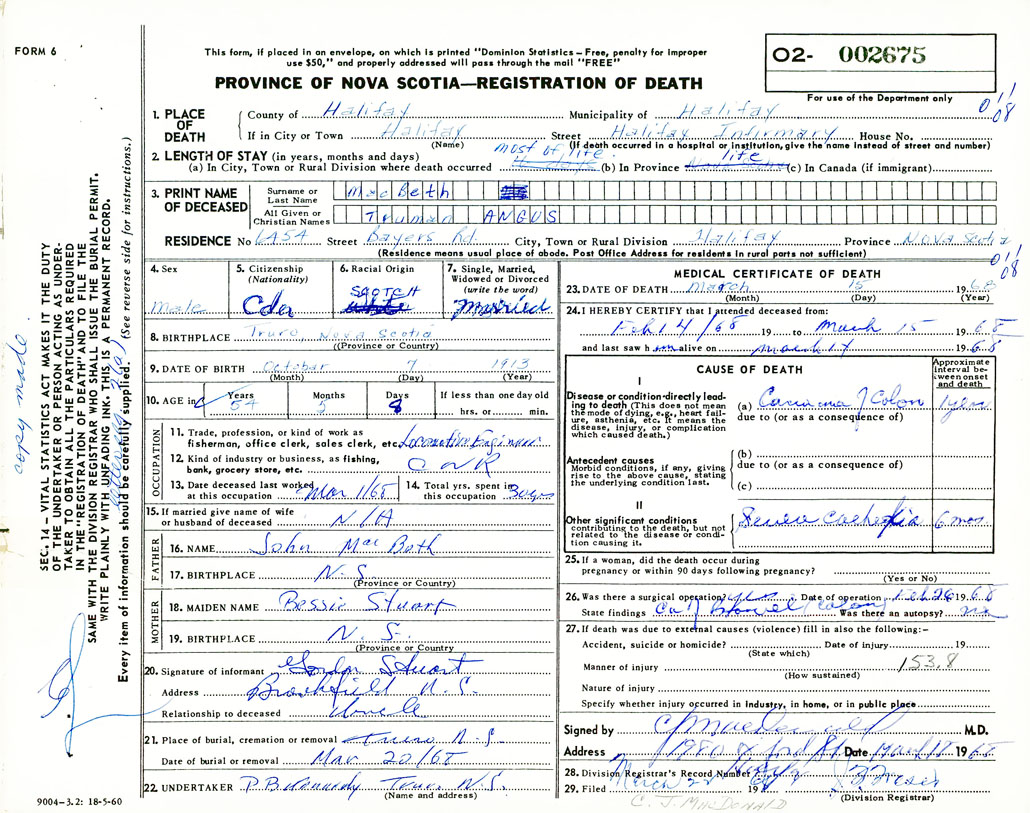 FORM 6
This form, if placed in an envelope, on which is printed "Dominion Statistics – Free, penalty for improper
use $50," and properly addressed will pass through the mail "FREE"
PROVINCE OF NOVA SCOTIA—REGISTRATION OF DEATH
O2- 002675
For use of the Department only
1. PLACE OF DEATH
County of Halifax Municipality of Halifax
If in City or Town Halifax Street Halifax Infirmary House No.
(Name) (If death occurred in a hospital or institution, give the name instead of street and number)
2. LENGTH OF STAY (in years, months and days) most of life life
(a) In City, Town or Rural Division where death occurred (b) In Province (c) In Canada (if immigrant)
3. PRINT NAME OF DECEASED
Surname or Last Name MacBeth
All Given or Christian Names Truman ANGUS
RESIDENCE No 6454 Street Bayers Rd. City, Town or Rural Division Halifax Province Nova Scotia
(Residence means usual place of abode. Post Office Address for residents in rural parts not sufficient)
4. Sex
Male
5. Citizenship (Nationality)
Cdn
6. Racial Origin
SCOTCH
white
7. Single, Married, Widowed or Divorced (write the word)
Married
8. BIRTHPLACE Truro, Nova Scotia
(Province or Country)
9. DATE OF BIRTH October 7 1913
(Month) (Day) (Year)
10. AGE in Years Months Days If less than one day old
54 5 8 hrs. or min.
OCCUPATION
11. Trade, profession, or kind of work as
fisherman, office clerk, sales clerk, etc. Locomotive Engineer
12. Kind of industry or business, as fishing,
bank, grocery store, etc. C N R
13. Date deceased last worked
at this occupation Mar 1/68
14. Total yrs. spent in
this occupation 30 yrs
15. If married give name of wife
or husband of deceased N/A
FATHER
16. NAME John MacBeth
17. BIRTHPLACE N.S.
(Province or Country)
MOTHER
18. MAIDEN NAME Bessie Stuart
19. BIRTHPLACE N.S.
(Province or Country)
20. Signature of informant Gordon Stuart
Address Brookfield N.S.
Relationship to deceased Uncle
21. Place of burial, cremation or removal Truro N.S.
Date of burial or removal Mar. 20/68
22. UNDERTAKER Truro N.S.
(Name and address)
9004–3.2: 18-5-60
MEDICAL CERTIFICATE OF DEATH
23. DATE OF DEATH March 15 1968
(Month) (Day) (Year)
24. I HEREBY CERTIFY that I attended deceased from:
Feb 14/68 19 to March 15 1968
and last saw him alive on March 14 1968
CAUSE OF DEATH
Approximate interval between onset and death
I
Disease or condition directly leading to death (This does not mean the mode of dying, e.g., heart failure, asthenia, etc. It means the disease, injury, or complication which caused death.)
(a) Carcinoma of Colon 1 year
due to (or as a consequence of)
Antecedent causes
Morbid conditions, if any, giving rise to the above cause, stating the underlying condition last.
(b)
due to (or as a consequence of)
(c)
II
Other significant conditions
contributing to the death, but not related to the disease or condition causing it.
Severe cachexia 6 mos
25. If a woman, did the death occur during
pregnancy or within 90 days following pregnancy?
(Yes or No)
26. Was there a surgical operation? yes Date of operation Feb 26 1968
State findings Ca of bowel (colon) Was there an autopsy? no
27. If death was due to external causes (violence) fill in also the following:–
Accident, suicide or homicide? Date of injury 19
(State which)
Manner of injury 153.8
(How sustained)
Nature of injury
Specify whether injury occurred in industry, in home, or in public place
Signed by M.D.
Address Date March 18 1968
28. Division Registrar's Record Number
29. Filed March 22 19
(Division Registrar)
C. J. MacDONALD
SEC. 14 – VITAL STATISTICS ACT MAKES IT THE DUTY
OF THE UNDERTAKER OR PERSON ACTING AS UNDER-
TAKER TO OBTAIN ALL THE PARTICULARS REQUIRED
IN THE "REGISTRATION OF DEATH" AND TO FILE THE
SAME WITH THE DIVISION REGISTRAR WHO SHALL ISSUE THE BURIAL PERMIT.
WRITE PLAINLY WITH UNFADING INK. THIS IS A PERMANENT RECORD.
Every item of information should be carefully supplied. (See reverse side for instructions.)
copy made